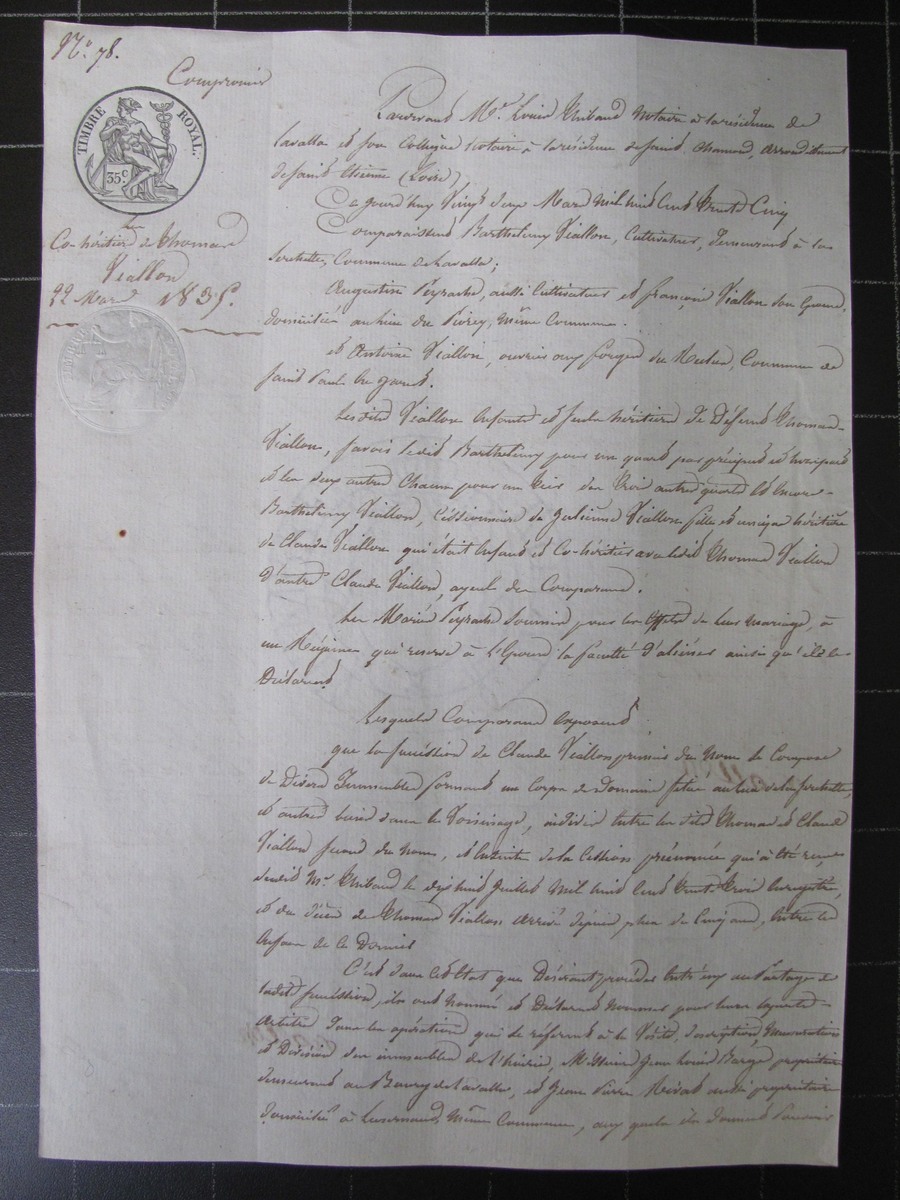 N.° 78.
Compromis
TIMBRE ROYAL.
35.c
Les
Co-héritiers de Thomas
Viallon
22 Mars 1835.
Pardevant Me. Louis Thibaud Notaire à la résidence de
Lavalla et son Collègue Notaire à la résidence de Saint Chamond, arrondissement
de Saint Etienne (Loire)
Ce jourd'huy Vingt deux Mars mil huit cent trente Cinq
Comparaissent Barthelemy Viallon, Cultivateur, demeurant à la
Commune de Lavalla;
Augustin Peyrache, aussi Cultivateur et françoise Viallon son Epouse,
domiciliés au lieu du même Commune.
et Antoine Viallon, ouvrier aux forges du Commune de
Saint Paul en Jarret.
Les dits Viallon Enfants et seuls héritiers de Défunt Thomas
Viallon, savoir ledit Barthelemy pour un quart par préciput et hors part
et les deux autres Chacun pour un tiers des trois autres quarts et encore
Barthelemy Viallon, Cessionnaire de Julienne Viallon fille et unique héritière
de Claude Viallon qui était Enfant et Co-héritier avec ledit Thomas Viallon
d'autre Claude Viallon, ayeul des Comparans.
Les Mariés Peyrache soumis pour les Effets de leur mariage, à
un Régime qui reserve à l'Epouse la faculté d'aliéner ainsi qu'ils le
Déclarent
Lesquels Comparans exposent
que la succession de Claude Viallon premier du nom se Compose
de Divers Immeubles formant un Corps de Domaine situé au lieu de
et autres biens dans le Voisinage, indivis entre les dits Thomas et Claude
Viallon second du nom, et ensuite de la Cession prénommée qui a été reçue
dudit Me. Thibaud le dix huit Juillet mil huit cent trente trois Enregistrée,
et du décès de Thomas Viallon arrivé depuis plus de Cinq ans, entre les
Enfans de ce Dernier
C'est dans cet Etat que Désirant procéder entr'eux au Partage de
ladite succession, ils ont nommé et Déclarent nommer pour leurs experts
arbitres dans les opérations qui se réfèrent à la Visite, description,
et Division des immeubles de l'hoirie, Messieurs Jean Louis Barge propriétaire
demeurant au Bourg de Lavalla, et Jean Pierre Rivat aussi propriétaire
domicilié à Luzernaud, même Commune, aux quels ils donnent Pouvoir